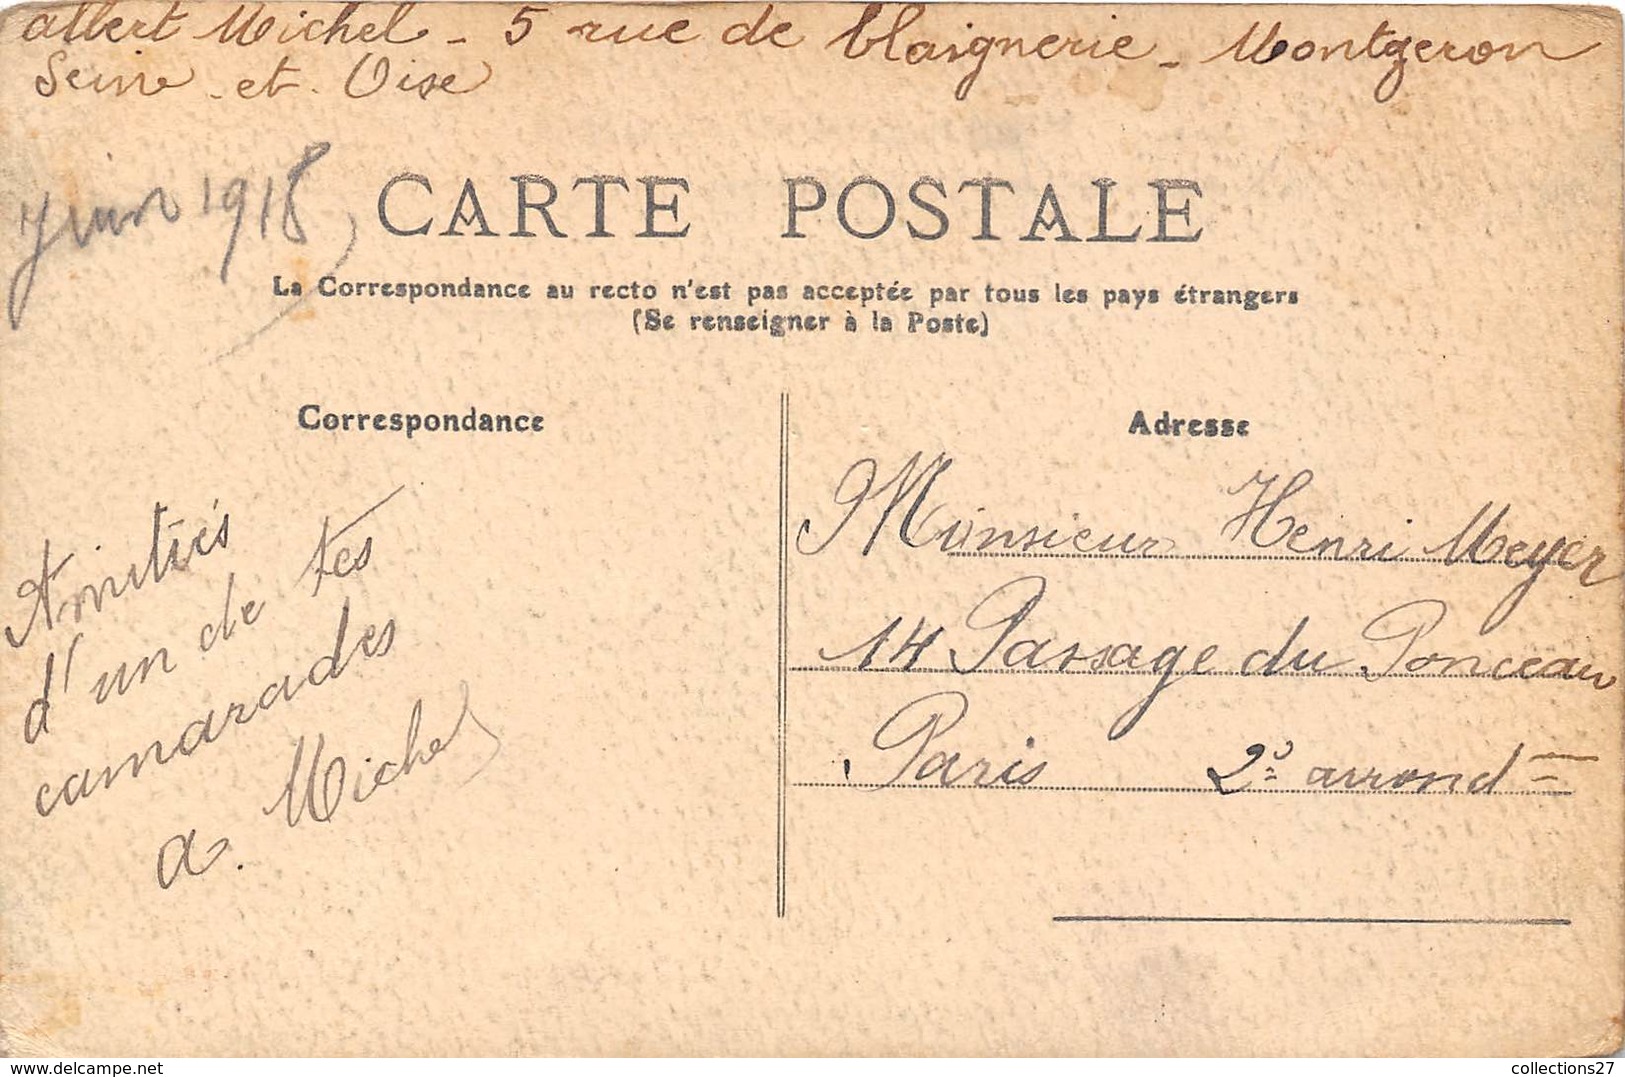 albert Michel - 5 rue de blaignerie - Montgeron
Seine - et - Oise
Juin 1918
CARTE POSTALE
La Correspondance au recto n'est pas acceptée par tous les pays étrangers
(Se renseigner à la Poste)
Correspondance
Amitiés
d'un de tes
camarades
a. Michel
Adresse
Monsieur Henri Meyer
14 Passage du Ponceau
Paris 2e arrond
delcampe.net
collections27